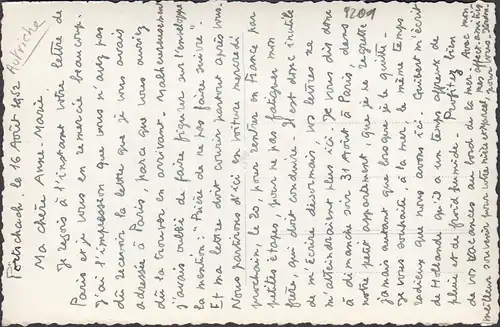 Autriche
9201
Pörtschach le 16 Août 1962
Ma chère Anne-Marie
Je reçois à l'instant votre lettre de
Paris et je vous en remercie beaucoup.
J'ai l'impression que vous n'avez pas
dû recevoir la lettre que je vous avais
adressée à Paris, parce que vous auriez
dû la trouver en arrivant. Malheureusement
j'avais oublié de faire figurer sur l'enveloppe
la mention: "Prière de ne pas faire suivre"
Et ma lettre doit courir partout après vous.
Nous partirons d'ici en voiture mercredi
prochain, le 20, pour rentrer en France par
petites étapes, pour ne pas fatiguer mon
frère, qui doit conduire. Il est donc inutile
de m'écrire désormais, vos lettres ne
m'atteindraient plus ici. Je vous dis donc
à dimanche soir 31 Août à Paris, dans
notre petit appartement, que je ne regrette
jamais autant que lorsque je le quitte.
Je vous souhaite, à la mer, le même temps
radieux que nous avons ici. Guibert m'écrit
de Hollande qu'il a un temps affreux de
pluie et de froid humide. Profitez bien
de vos vacances au bord de la mer. Avec mon
meilleur souvenir pour votre mère et
mes affect. amitiés
pour vous.